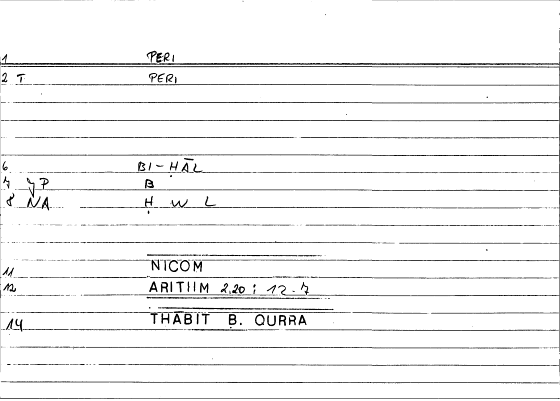 1 PERI
2 T PERI
6 BI-ḤĀL
7 yP B
8 NA Ḥ W L
11 NICOM
12 ARITHM 2.20; 12-7
14 THĀBIT B. QURRA